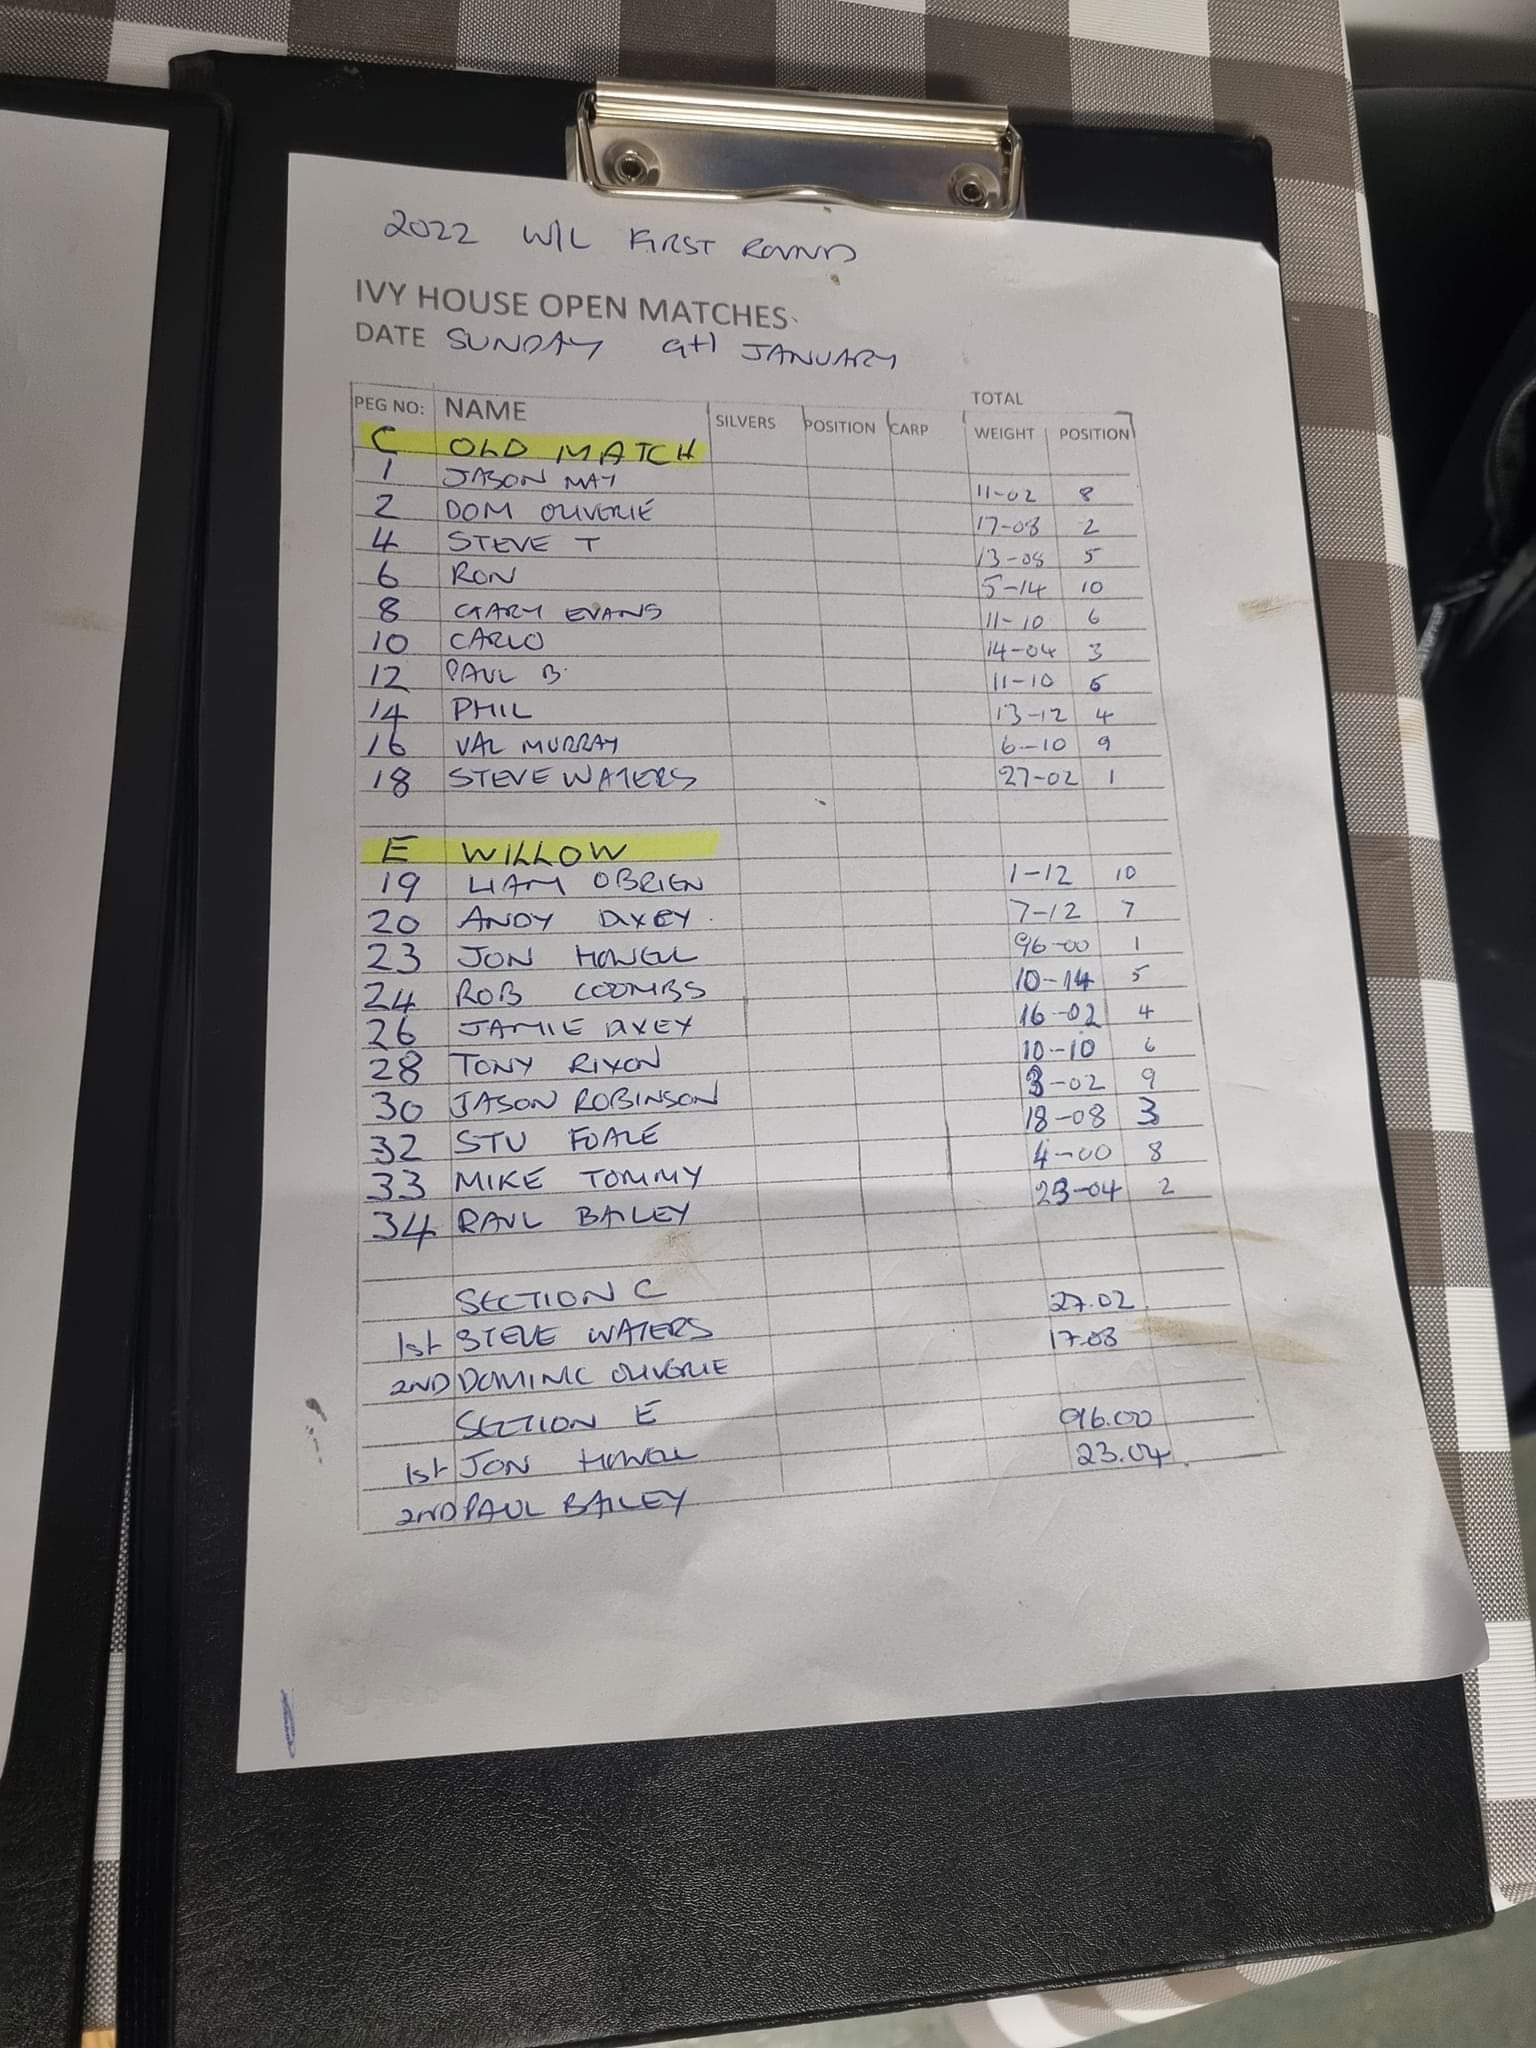 2022 W/L FIRST ROUND
IVY HOUSE OPEN MATCHES
DATE SUNDAY 9TH JANUARY
TOTAL
PEG NO: NAME SILVERS POSITION CARP WEIGHT POSITION
C OLD MATCH
1 JASON MAY 11-02 8
2 DOM OLIVERIE 17-08 2
4 STEVE T 13-08 5
6 RON 5-14 10
8 GARY EVANS 11-10 6
10 CARLO 14-04 3
12 PAUL B. 11-10 6
14 PHIL 13-12 4
16 VAL MURRAY 6-10 9
18 STEVE WATERS 27-02 1
E WILLOW
19 LIAM OBRIEN 1-12 10
20 ANDY DIXEY 7-12 7
23 JON HOWELL 96-00 1
24 ROB COOMBS 10-14 5
26 JAMIE DIXEY 16-02 4
28 TONY RIXON 10-10 6
30 JASON ROBINSON 3-02 9
32 STU FOALE 18-08 3
33 MIKE TOMMY 4-00 8
34 PAUL BAILEY 23-04 2
SECTION C
1st STEVE WATERS 27.02
2ND DOMINIC OLIVERIE 17.08
SECTION E
1st JON HOWELL 96.00
2ND PAUL BAILEY 23.04